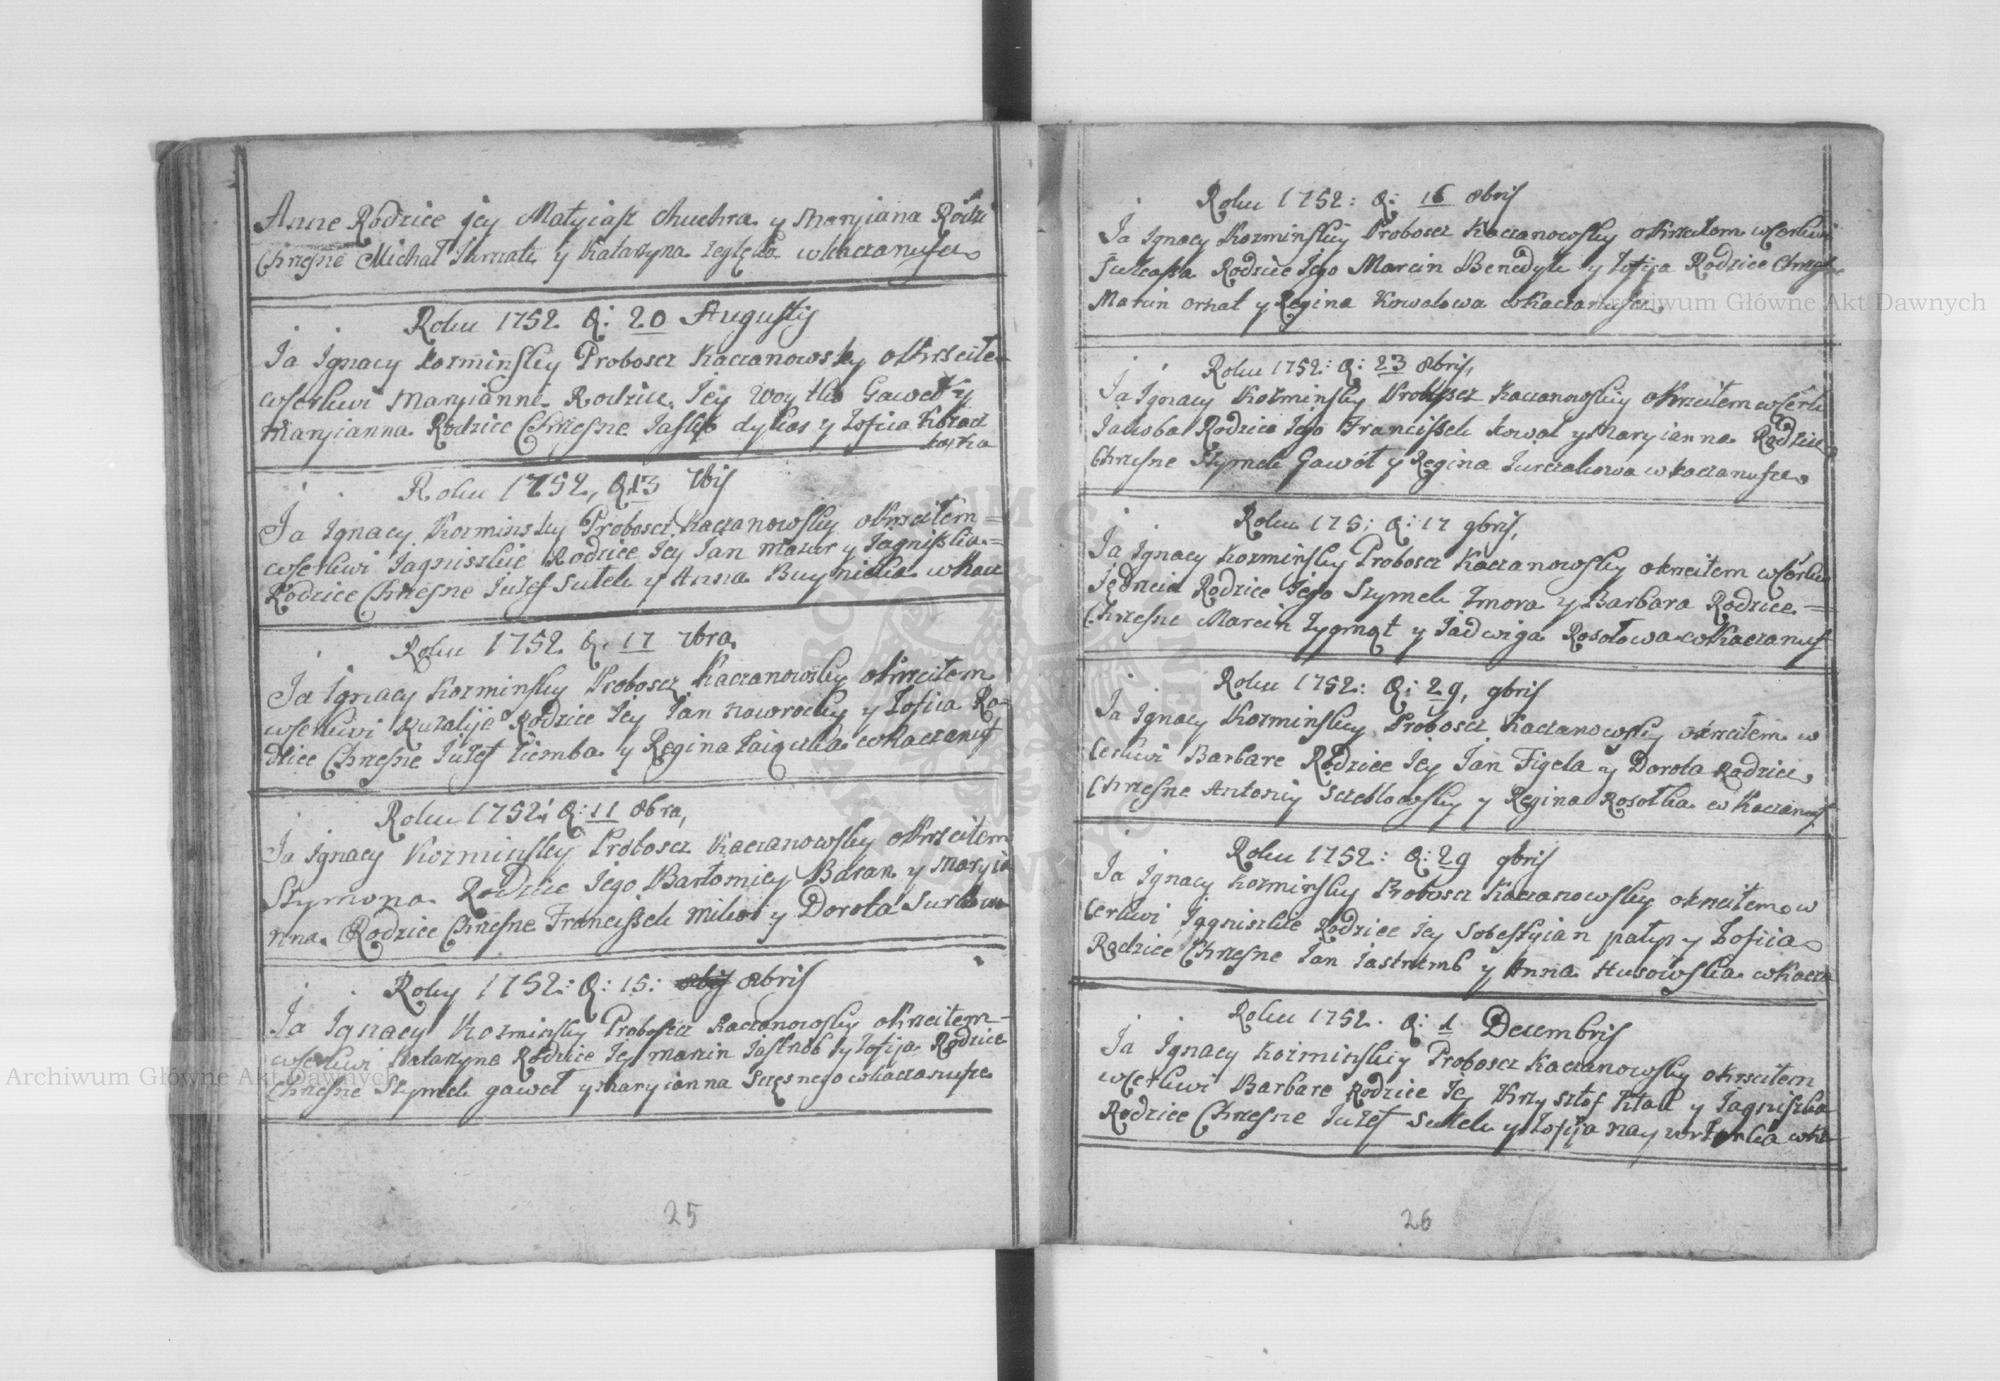 Anne Rodzice Jey Matyiasz Chuchra y Maryiana Rodzi
Chrzesne Michał y Katarzyna w Kaczanufce
Roku 1752 D: 20 Augusty
Ja Ignacy Kozminsky Proboscz Kaczanowsky okrzciłem
w Cerkwi Maryianne Rodzice Jey Woytko Gaweł y
Maryianna Rodzice Chrzesne Jasko dykas y Zofiia
Roku 1752, D 13 7bis
Ja Ignacy Kozminsky Proboscz Kaczanowsky okrzciłem =
w Cerkwi Jagniszkie Rodzice Jey Jan Mazur y Jagniszka =
Rodzice Chrzesne Juzef Sutek y Anna w Kacz
Roku 1752 D: 17 7bra
Ja Ignacy Kozminsky Proboscz Kaczanowsky okrzciłem
w Cerkwi Rozalije Rodzice Jey Jan Nawrocky y Zofiia Ro=
dzice Chrzesne Juzef Ziemba y Regina w Kaczanuf
Roku 1752: D: 11 8bra,
Ja Ignacy Kozminsky Proboscz Kaczanowsky okrzciłem
Szymona Rodzice Jego Bartomiey Baran y Maryia
nna Rodzice Chrzesne Franciszek y Dorota
Roku 1752: D: 15: 8bris
Ja Ignacy Kozminsky Proboscz Kaczanowsky okrzciłem =
w Cerkwi Katarzyna Rodzice Jey Marcin y Zofija Rodzice
Chrzesne Szymek gaweł y Maryianna w Kaczanufce
25
Roku 1752: D: 16 8bris
Ja Ignacy Kozminsky Proboscz Kaczanowsky okrzciłem w Cerkwi
Rodzice Jego Marcin Benedyk y Zofija Rodzice Chrzesne
Marcin y Regina Kowalowa w Kaczanufce
Roku 1752: D: 23 8bris,
Ja Ignacy Kozminsky Proboscz Kaczanowsky okrzciłem w Cerk
Jakoba Rodzice Jego Franciszek Kowal y Maryianna Rodzice
Chrzesne Szymek Gawół y Regina Jurczakowa w Kaczanufce
Roku 175: D: 17 9bris,
Ja Ignacy Kozminsky Proboscz Kaczanowsky okrzciłem w Cerkw
Rodzice Jego Szymek Zmora y Barbara Rodzice =
Chrzesne Marcin Zygmąt y Jadwiga Rosołowa w Kaczanuf
Roku 1752: D: 29, 9bris
Ja Ignacy Kozminsky Proboscz Kaczanowsky okrzciłem w
Cerkwi Barbare Rodzice Jey Jan Figela y Dorota Rodzice
Chrzesne Antoniy y Regina Rosołka w Kaczanuf
Roku 1752: D: 29 9bris
Ja Ignacy Kozminsky Proboscz Kaczanowsky okrzciłem w
Cerkwi Jagniszkie Rodzice Jey Sobestyian y Zofiia
Rodzice Chrzesne Jan Jastrzemb y Anna w Kacza
Roku 1752. D: 1 Decembris
Ja Ignacy Kozminsky Proboscz Kaczanowsky okrzciłem
w Cerkwi Barbare Rodzice Jey Krzysztof y Jagniszka
Rodzice Chrzesne Juzef Sutek y Zofija
26
Archiwum Główne Akt Dawnych
Archiwum Główne Akt Dawnych
ARCHIWUM GŁÓWNE AKT DAWNYCH